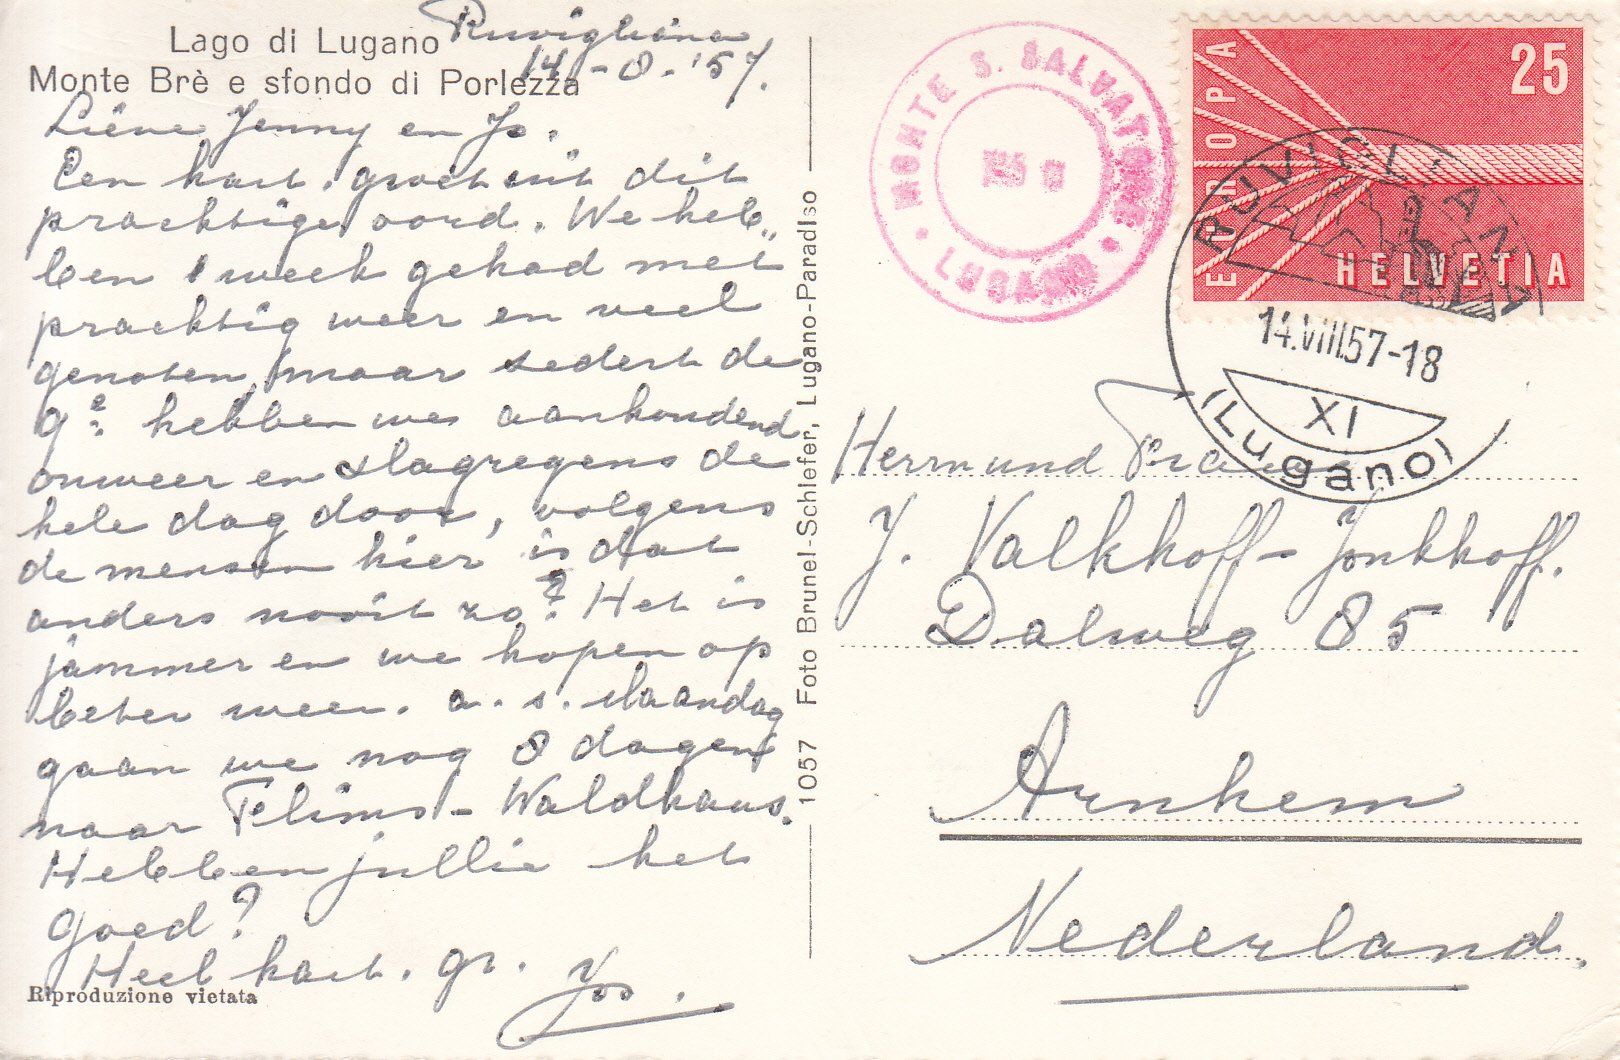 Lago di Lugano
Monte Brè e sfondo di Porlezza
Ruvigliana
14-8-'57.
Lieve Jenny en Jo.
Een hart. groet uit dit
prachtige oord. We heb„
ben 1 week gehad met
prachtig weer en veel
genoten, maar sedert de
9e: hebben we aanhoudend
onweer en slagregens de
hele dag door, volgens
de mensen hier is dat
anders nooit zo? Het is
jammer en we hopen op
beter weer. a.s. Maandag
gaan we nog 8 dagen
naar Flims-Waldhaus.
Hebben jullie het
goed?
Heel hart. gr. Jos.
Riproduzione vietata
1057 Foto Brunel-Schiefer, Lugano-Paradiso
MONTE S. SALVATORE
LUGANO
EUROPA
25
HELVETIA
RUVIGLIANA
14.VIII.57-18
XI
(Lugano)
Herrn und Frau
J. Valkhoff-Jonkhoff.
Dalweg 85
Arnhem
Nederland.